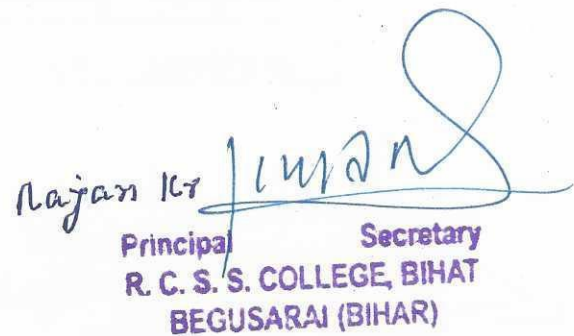 Rajan Kr
Principal Secretary
R. C. S. S. COLLEGE, BIHAT
BEGUSARAI (BIHAR)